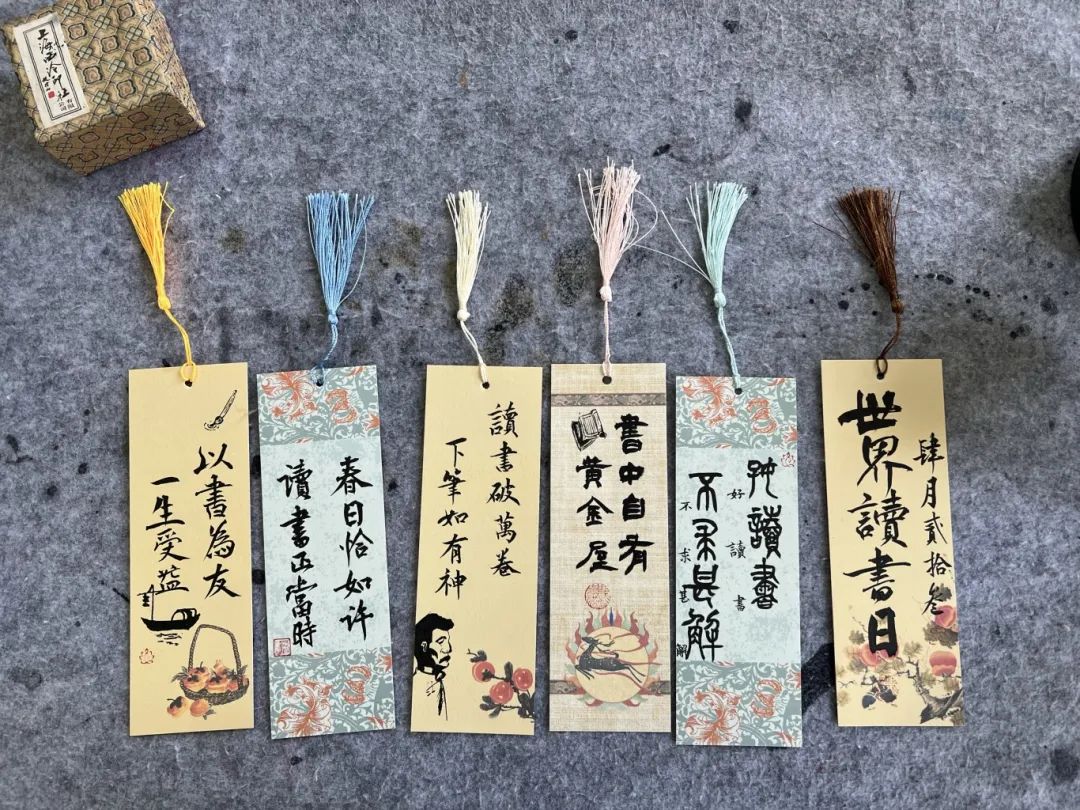 上海西泠印社
以書為友
一生受益
春日恰如许
讀書正當時
讀書破萬卷
下筆如有神
書中自有
黃金屋
好讀書
好讀書
不求甚解
不求甚解
肆月貳拾叁
世界讀書日